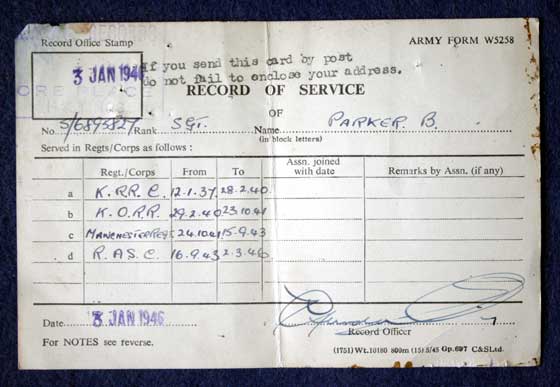 Record Office Stamp
ARMY FORM W5258
3 JAN 1946
If you send this card by post
do not fail to enclose your address.
RECORD OF SERVICE
OF
No. S/6895827 Rank SGT. Name PARKER. B.
(in block letters)
Served in Regts/Corps as follows :
Regt./Corps From To Assn. joined with date Remarks by Assn. (if any)
a K.RR.C. 12.1.37. 28.2.40.
b K.O.R.R. 29.2.40 23.10.41
c MANCHESTER REGT 24.10.41 15.9.43
d R.ASC. 16.9.43 2.3.46
Date 3 JAN 1946
Record Officer
For NOTES see reverse.
(1751) Wt.10180 800m (15) 5/45 Gp.697 C&SLtd.